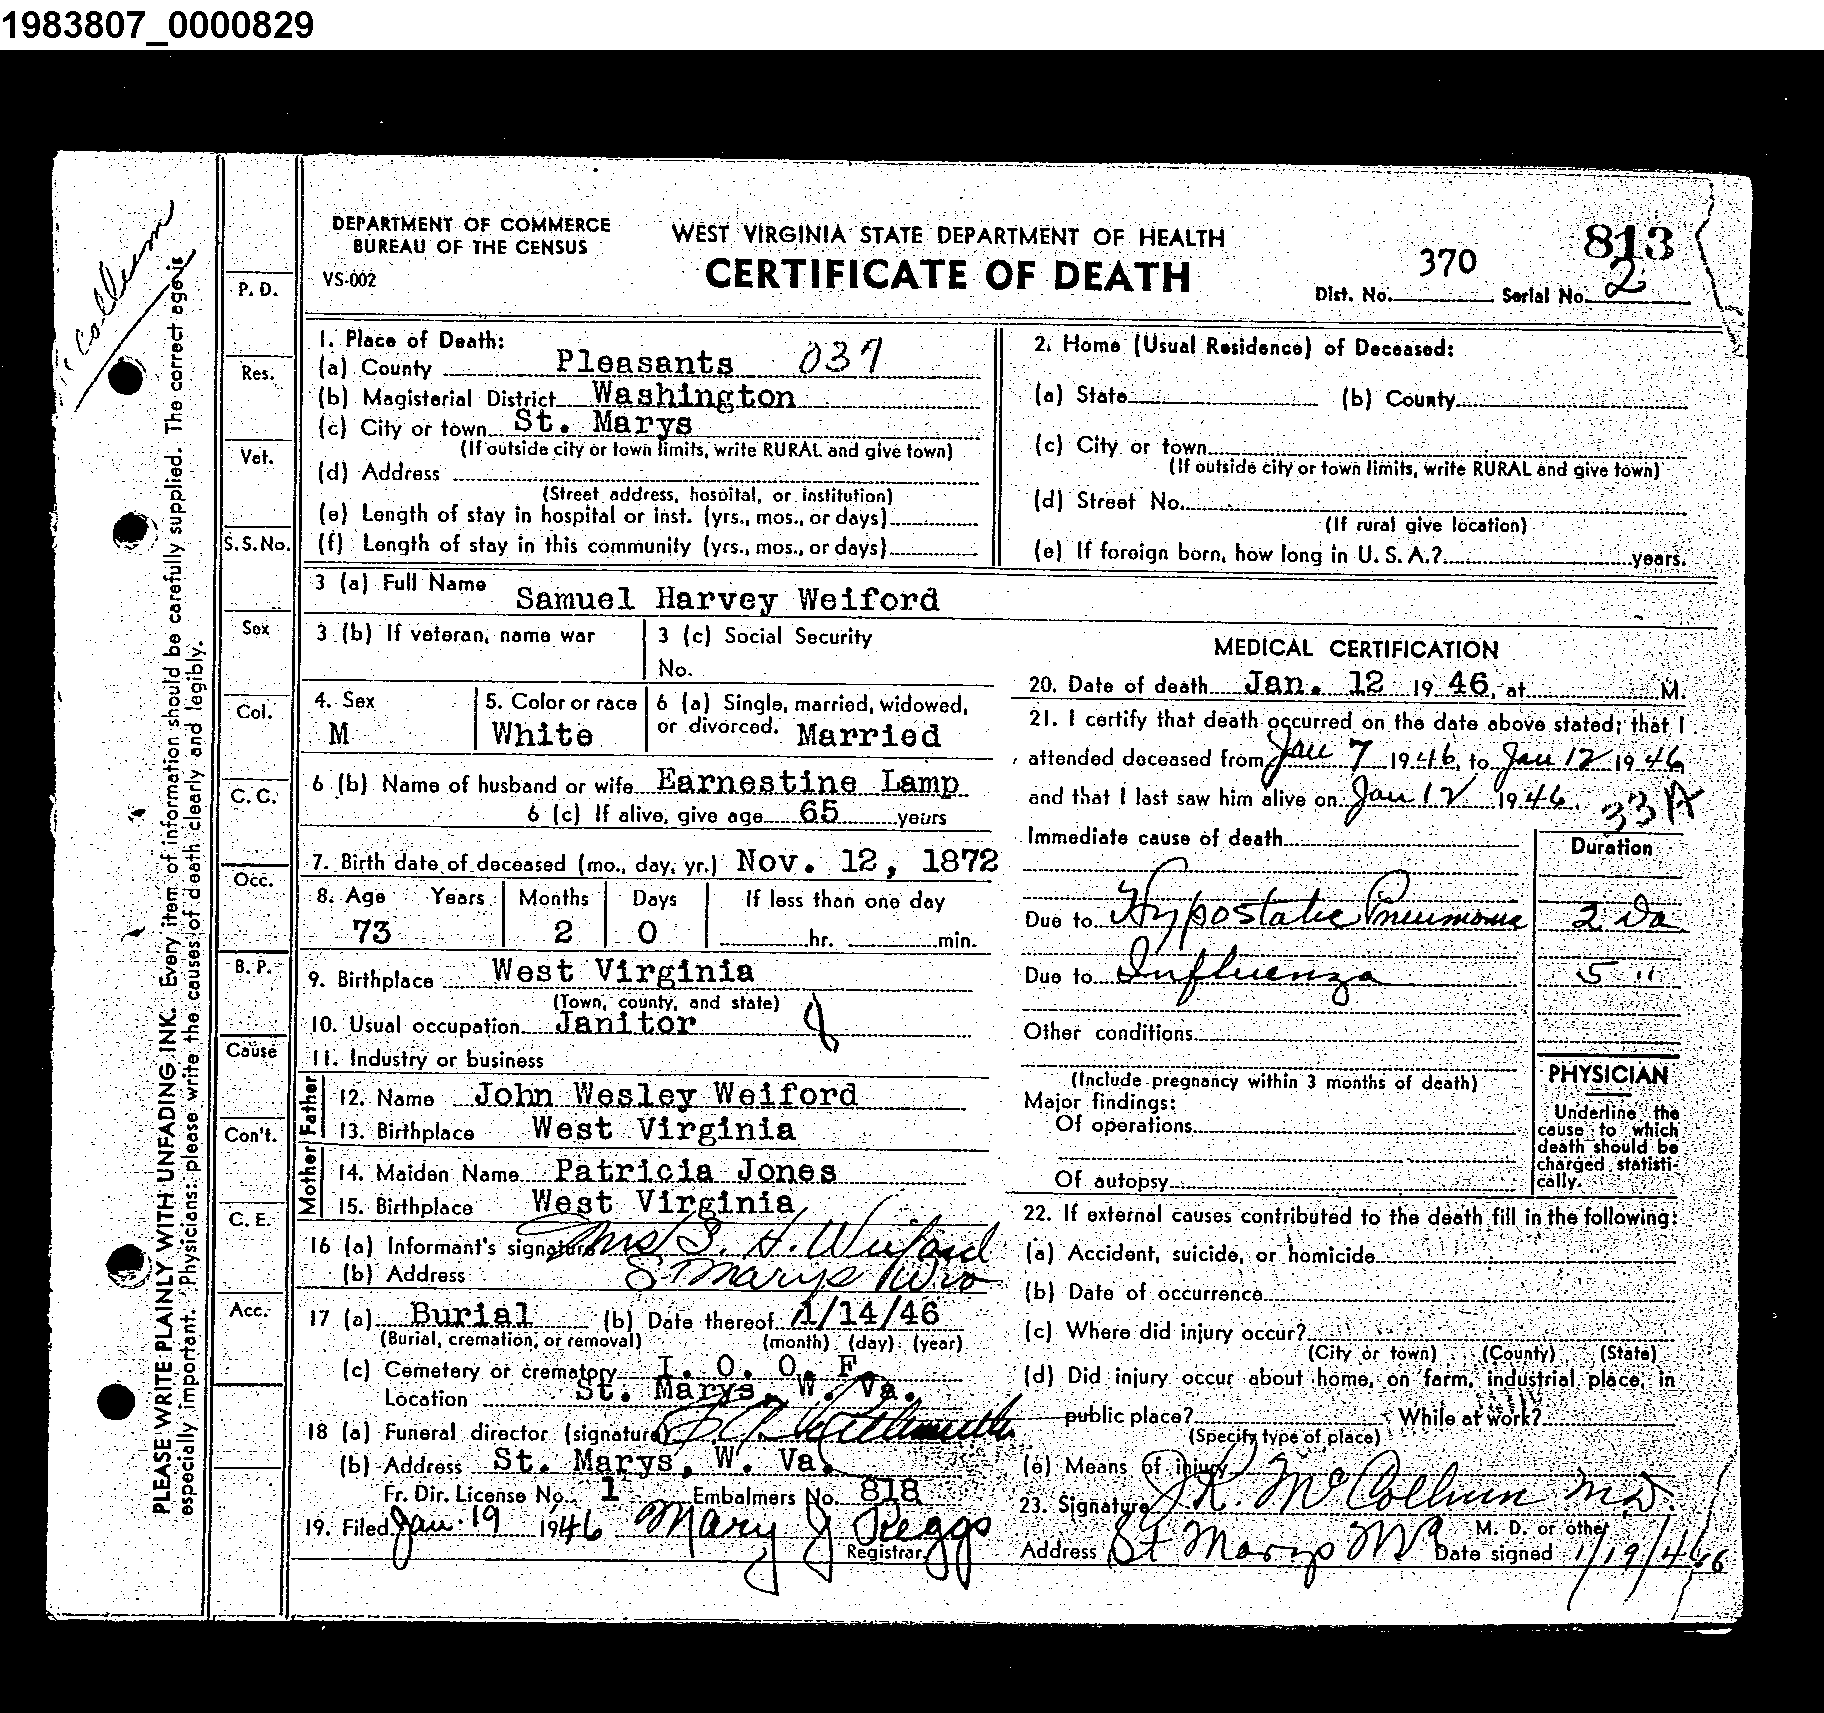 1983807_0000829
McCollum
PLEASE WRITE PLAINLY WITH UNFADING INK. Every item of information should be carefully supplied. The correct age is
especially important. Physicians: please write the causes of death clearly and legibly.
P. D.
Res.
Vet.
S.S.No.
Sex
Col.
C. C.
Occ.
B. P.
Cause
Con't.
C. E.
Acc.
DEPARTMENT OF COMMERCE
BUREAU OF THE CENSUS
VS-002
WEST VIRGINIA STATE DEPARTMENT OF HEALTH
CERTIFICATE OF DEATH
813
Dist. No. 370 Serial No. 2
1. Place of Death:
(a) County Pleasants 037
(b) Magisterial District Washington
(c) City or town St. Marys
(If outside city or town limits, write RURAL and give town)
(d) Address
(Street address, hospital, or institution)
(e) Length of stay in hospital or inst. (yrs., mos., or days)
(f) Length of stay in this community (yrs., mos., or days)
2. Home (Usual Residence) of Deceased:
(a) State (b) County
(c) City or town
(If outside city or town limits, write RURAL and give town)
(d) Street No.
(If rural give location)
(e) If foreign born, how long in U. S. A.? years.
3 (a) Full Name Samuel Harvey Weiford
3 (b) If veteran, name war
3 (c) Social Security
No.
4. Sex
M
5. Color or race
White
6 (a) Single, married, widowed,
or divorced. Married
6 (b) Name of husband or wife Earnestine Lamp
6 (c) If alive, give age 65 years
7. Birth date of deceased (mo., day, yr.) Nov. 12, 1872
8. Age Years Months Days If less than one day
73 2 0 hr. min.
9. Birthplace West Virginia
(Town, county, and state)
10. Usual occupation Janitor
11. Industry or business
Father
12. Name John Wesley Weiford
13. Birthplace West Virginia
Mother
14. Maiden Name Patricia Jones
15. Birthplace West Virginia
16 (a) Informant's signature Mrs S. H. Weiford
(b) Address St Marys W Va
17 (a) Burial (b) Date thereof 1/14/46
(Burial, cremation, or removal) (month) (day) (year)
(c) Cemetery or crematory I. O. O. F.
Location St. Marys, W. Va.
18 (a) Funeral director (signature)
(b) Address St. Marys, W. Va.
Fr. Dir. License No. 1 Embalmers No. 818
19. Filed Jan. 19 1946 Mary J Reggs
Registrar
MEDICAL CERTIFICATION
20. Date of death Jan. 12 19 46, at M.
21. I certify that death occurred on the date above stated; that I
attended deceased from Jan 7 1946, to Jan 12 1946
and that I last saw him alive on Jan 12 1946.
33A
Immediate cause of death
Duration
Due to Hypostatic Pneumonia 2 Da
Due to Influenza 5 "
Other conditions
(Include pregnancy within 3 months of death)
Major findings:
Of operations
Of autopsy
PHYSICIAN
Underline the
cause to which
death should be
charged statisti-
cally.
22. If external causes contributed to the death fill in the following:
(a) Accident, suicide, or homicide
(b) Date of occurrence
(c) Where did injury occur?
(City or town) (County) (State)
(d) Did injury occur about home, on farm, industrial place, in
public place? While at work?
(Specify type of place)
(e) Means of injury
23. Signature J R. McCollum M.D.
M. D. or other
Address St Marys W Va Date signed 1/19/46